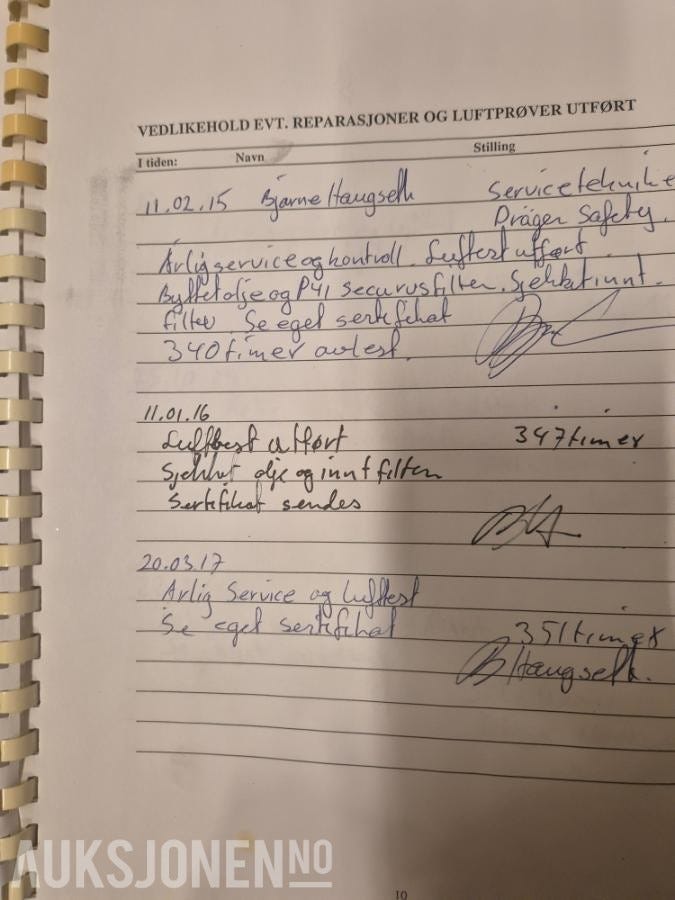 VEDLIKEHOLD EVT. REPARASJONER OG LUFTPRØVER UTFØRT
I tiden: Navn Stilling
11.02.15 Bjarne Haugseth Serviceteknike
Dräger Safety.
Årlig service og kontroll. Luftest utført.
Byttet olje og P41 securusfilter. Sjekket innt.
filter. Se eget sertifikat
340 timer avlest.
11.01.16
Luftest utført 347 timer
Sjekket olje og innt filter
Sertifikat sendes
20.03.17
Årlig Service og luftest
Se eget sertifikat 351 timer
B Haugseth.
10
AUKSJONEN NO